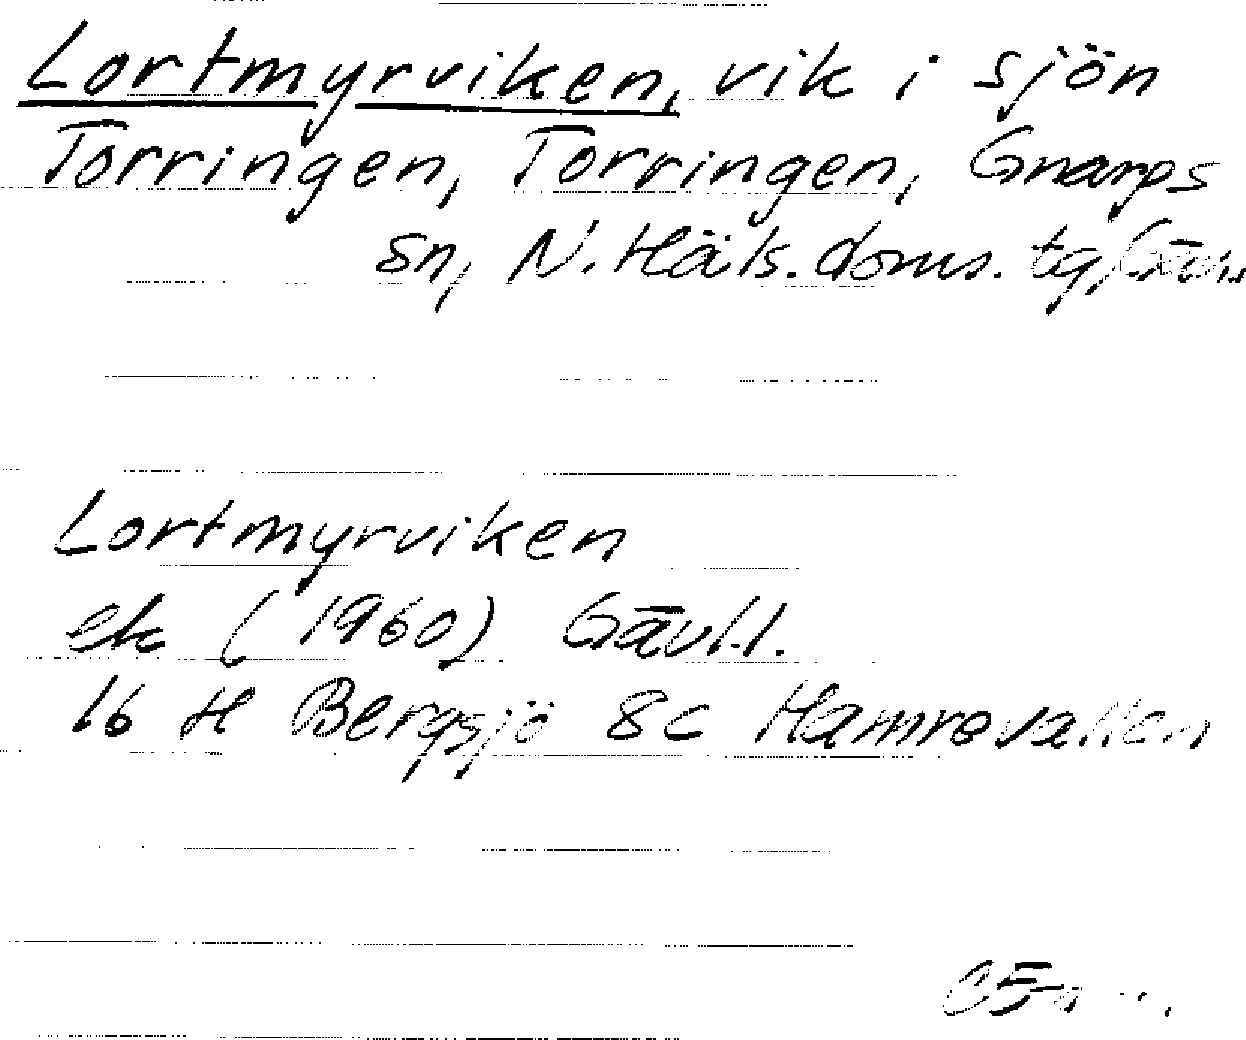 Lortmyrviken, vik i sjön
Torringen, Torringen, Gnarps
sn, N. Häls. doms. tg,
Lortmyrviken
ek (1960) Gävl.l.
16 H Bergsjö 8c Hamrevallen